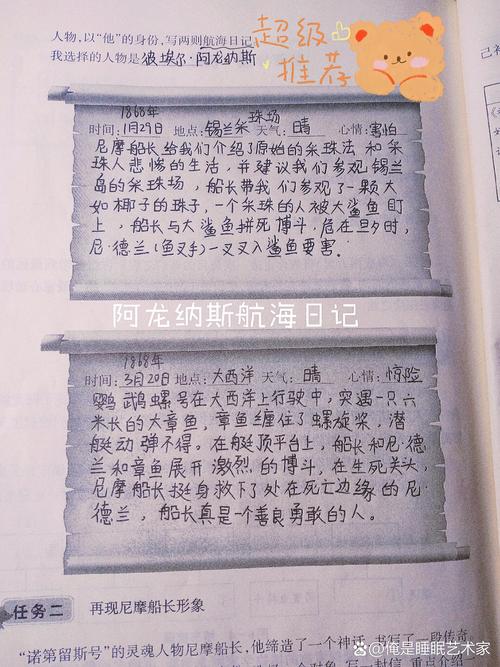 人物,以“他”的身份,写两则航海日记
我选择的人物是彼埃尔·阿龙纳斯
超级
推荐
1868年
时间:1月29日 地点:锡兰采珠场 天气:晴 心情:害怕
尼摩船长给我们介绍了原始的采珠法和采
珠人悲惨的生活,并建议我们参观锡兰
岛的采珠场,船长带我们参观了一颗大
如椰子的珠子,一个采珠的人被大鲨鱼盯
上,船长与大鲨鱼拼死博斗,危在旦夕时,
尼·德兰(鱼叉手)一叉叉入鲨鱼要害.
阿龙纳斯航海日记
1868年
时间:3月20日 地点:大西洋 天气:晴 心情:惊险
鹦鹉螺号在大西洋上行驶中,突遇一只六
米长的大章鱼,章鱼缠住了螺旋桨,潜
艇动弹不得。在艇顶平台上,船长和尼·德
兰和章鱼展开激烈的博斗,在生死关头,
尼摩船长挺身救下了处在死亡边缘的尼
·德兰,船长真是一个善良勇敢的人。
任务二 再现尼摩船长形象
“诺第留斯号”的灵魂人物尼摩船长,他缔造了一个神话,书写了一段传奇
知乎 @俺是睡眠艺术家